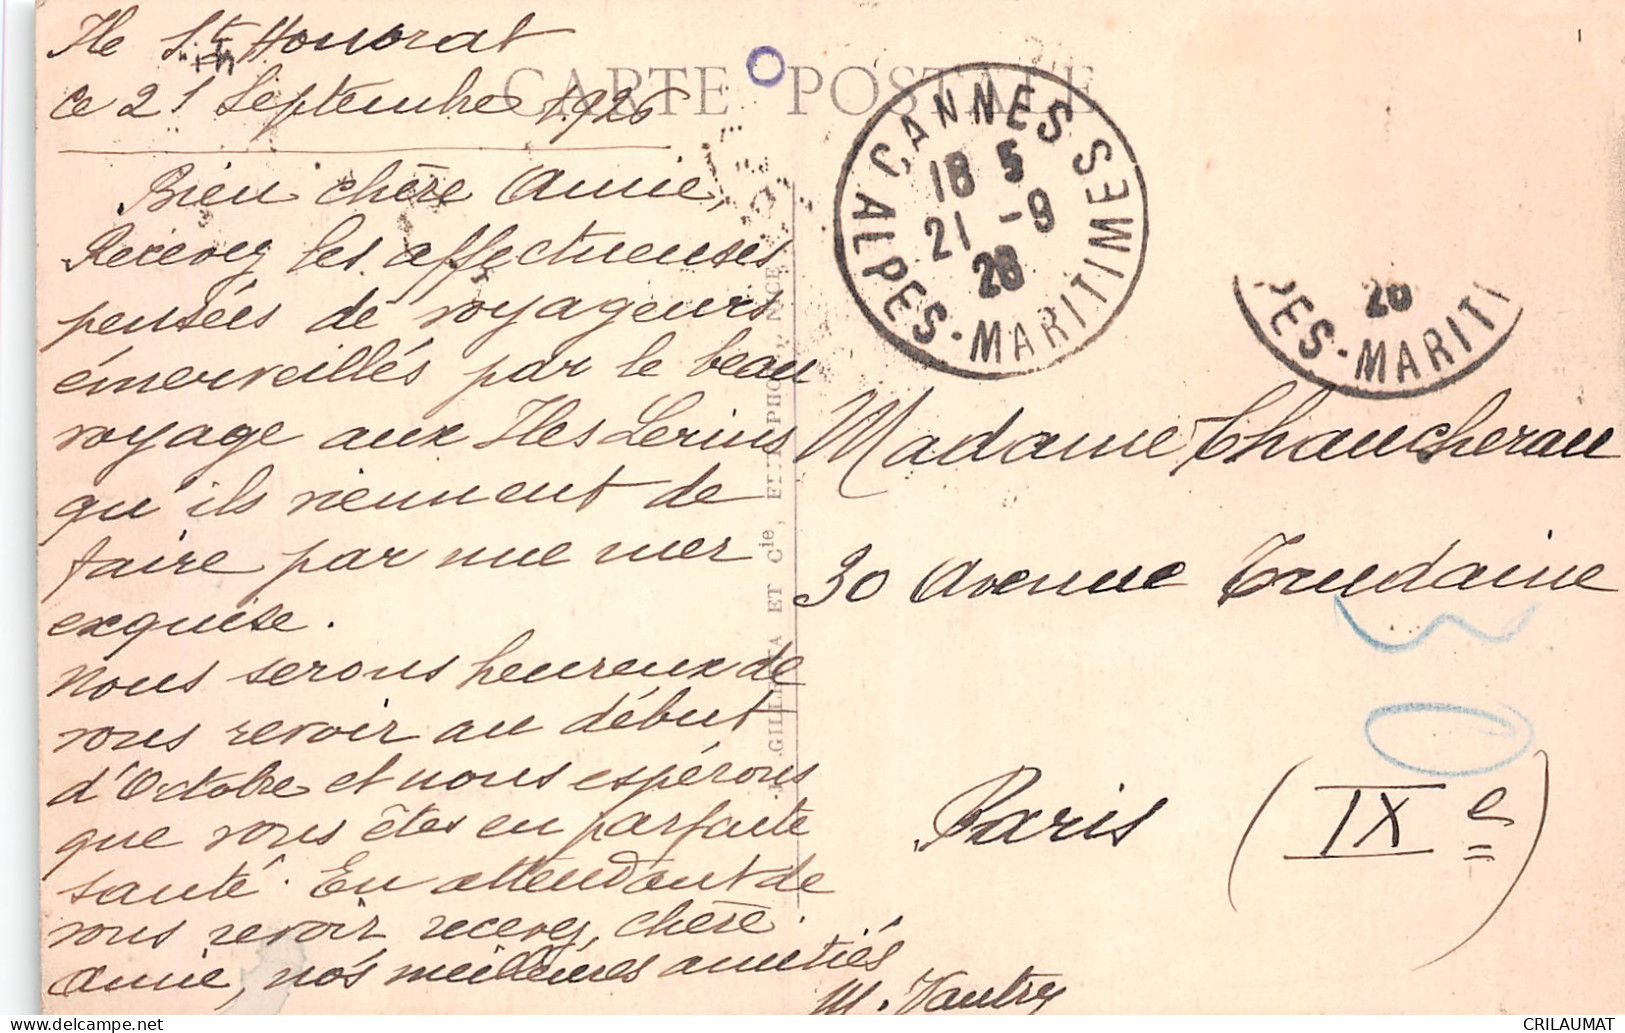 Ile St Honorat
ce 21 Septembre 1926
CARTE POSTALE
Bien chère Amie,
Recevez les affectueuses
pensées de voyageurs
émerveillés par le beau
voyage aux Iles Lerins
qu'ils viennent de
faire par une mer
exquise.
Nous serons heureux de
vous revoir au début
d'Octobre et nous espérons
que vous êtes en parfaite
santé. En attendant de
vous revoir recevez, chère
Amie, nos meilleures amitiés
M. Vautrey
ET Cie,
NICE
CANNES
18 5
21 -9
26
ALPES-MARITIMES
26
PES-MARITI
Madame Chauchereau
30 Avenue Trudaine
Paris (IXe)
CRILAUMAT